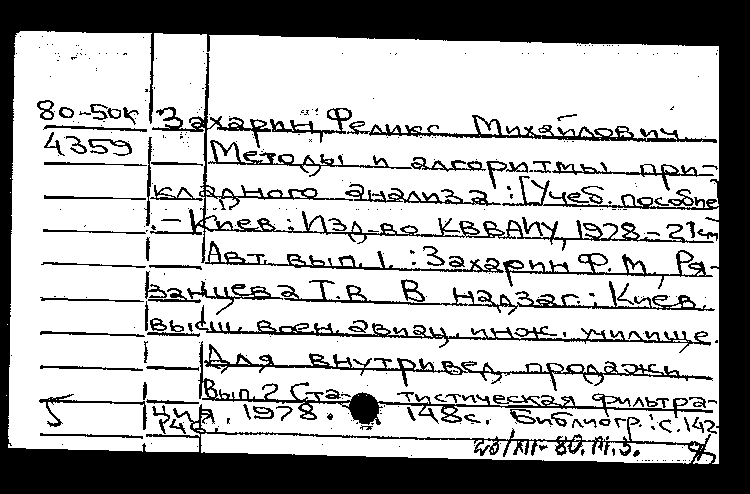 80-50к Захарин, Феликс Михайлович.
4359 Методы и алгоритмы при-
кладного анализа : [Учеб. пособие
. - Киев : Изд-во КВВАИУ, 1978 - 21см
Авт. вып. 1. : Захарин Ф. М., Ря-
занцева Т. В. В надзаг. : Киев.
высш. воен. авиац. инж. училище.
Для внутривед. продажи.
Вып. 2 Ста- тистическая фильтра-
5 ция. 1978. 148с. Библиогр. : с. 142-
146.